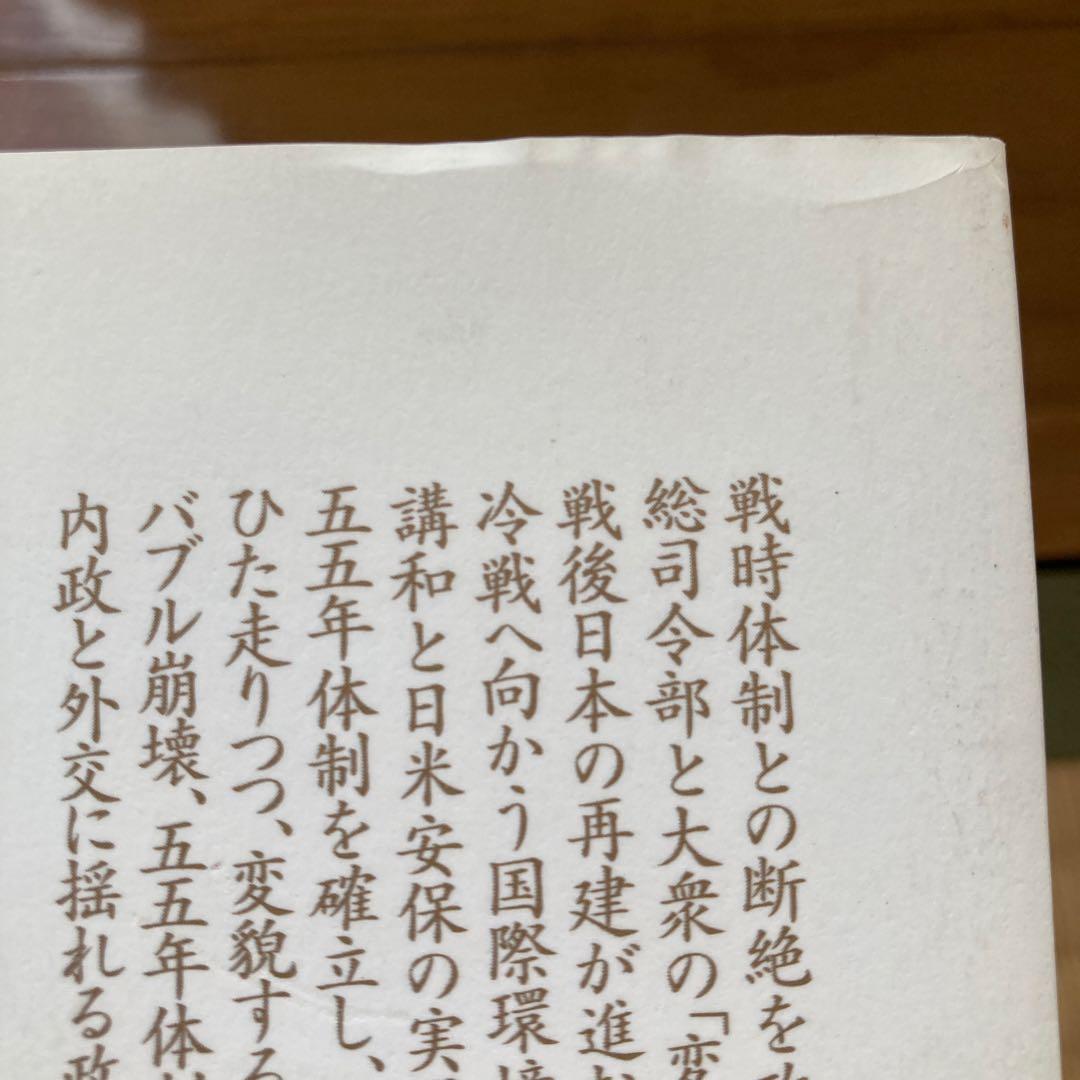 戦時体制との断絶を
総司令部と大衆の「変
戦後日本の再建が進
冷戦へ向かう国際環境
講和と日米安保の実
五五年体制を確立し、
ひた走りつつ、変貌する
バブル崩壊、五五年体
内政と外交に揺れる政